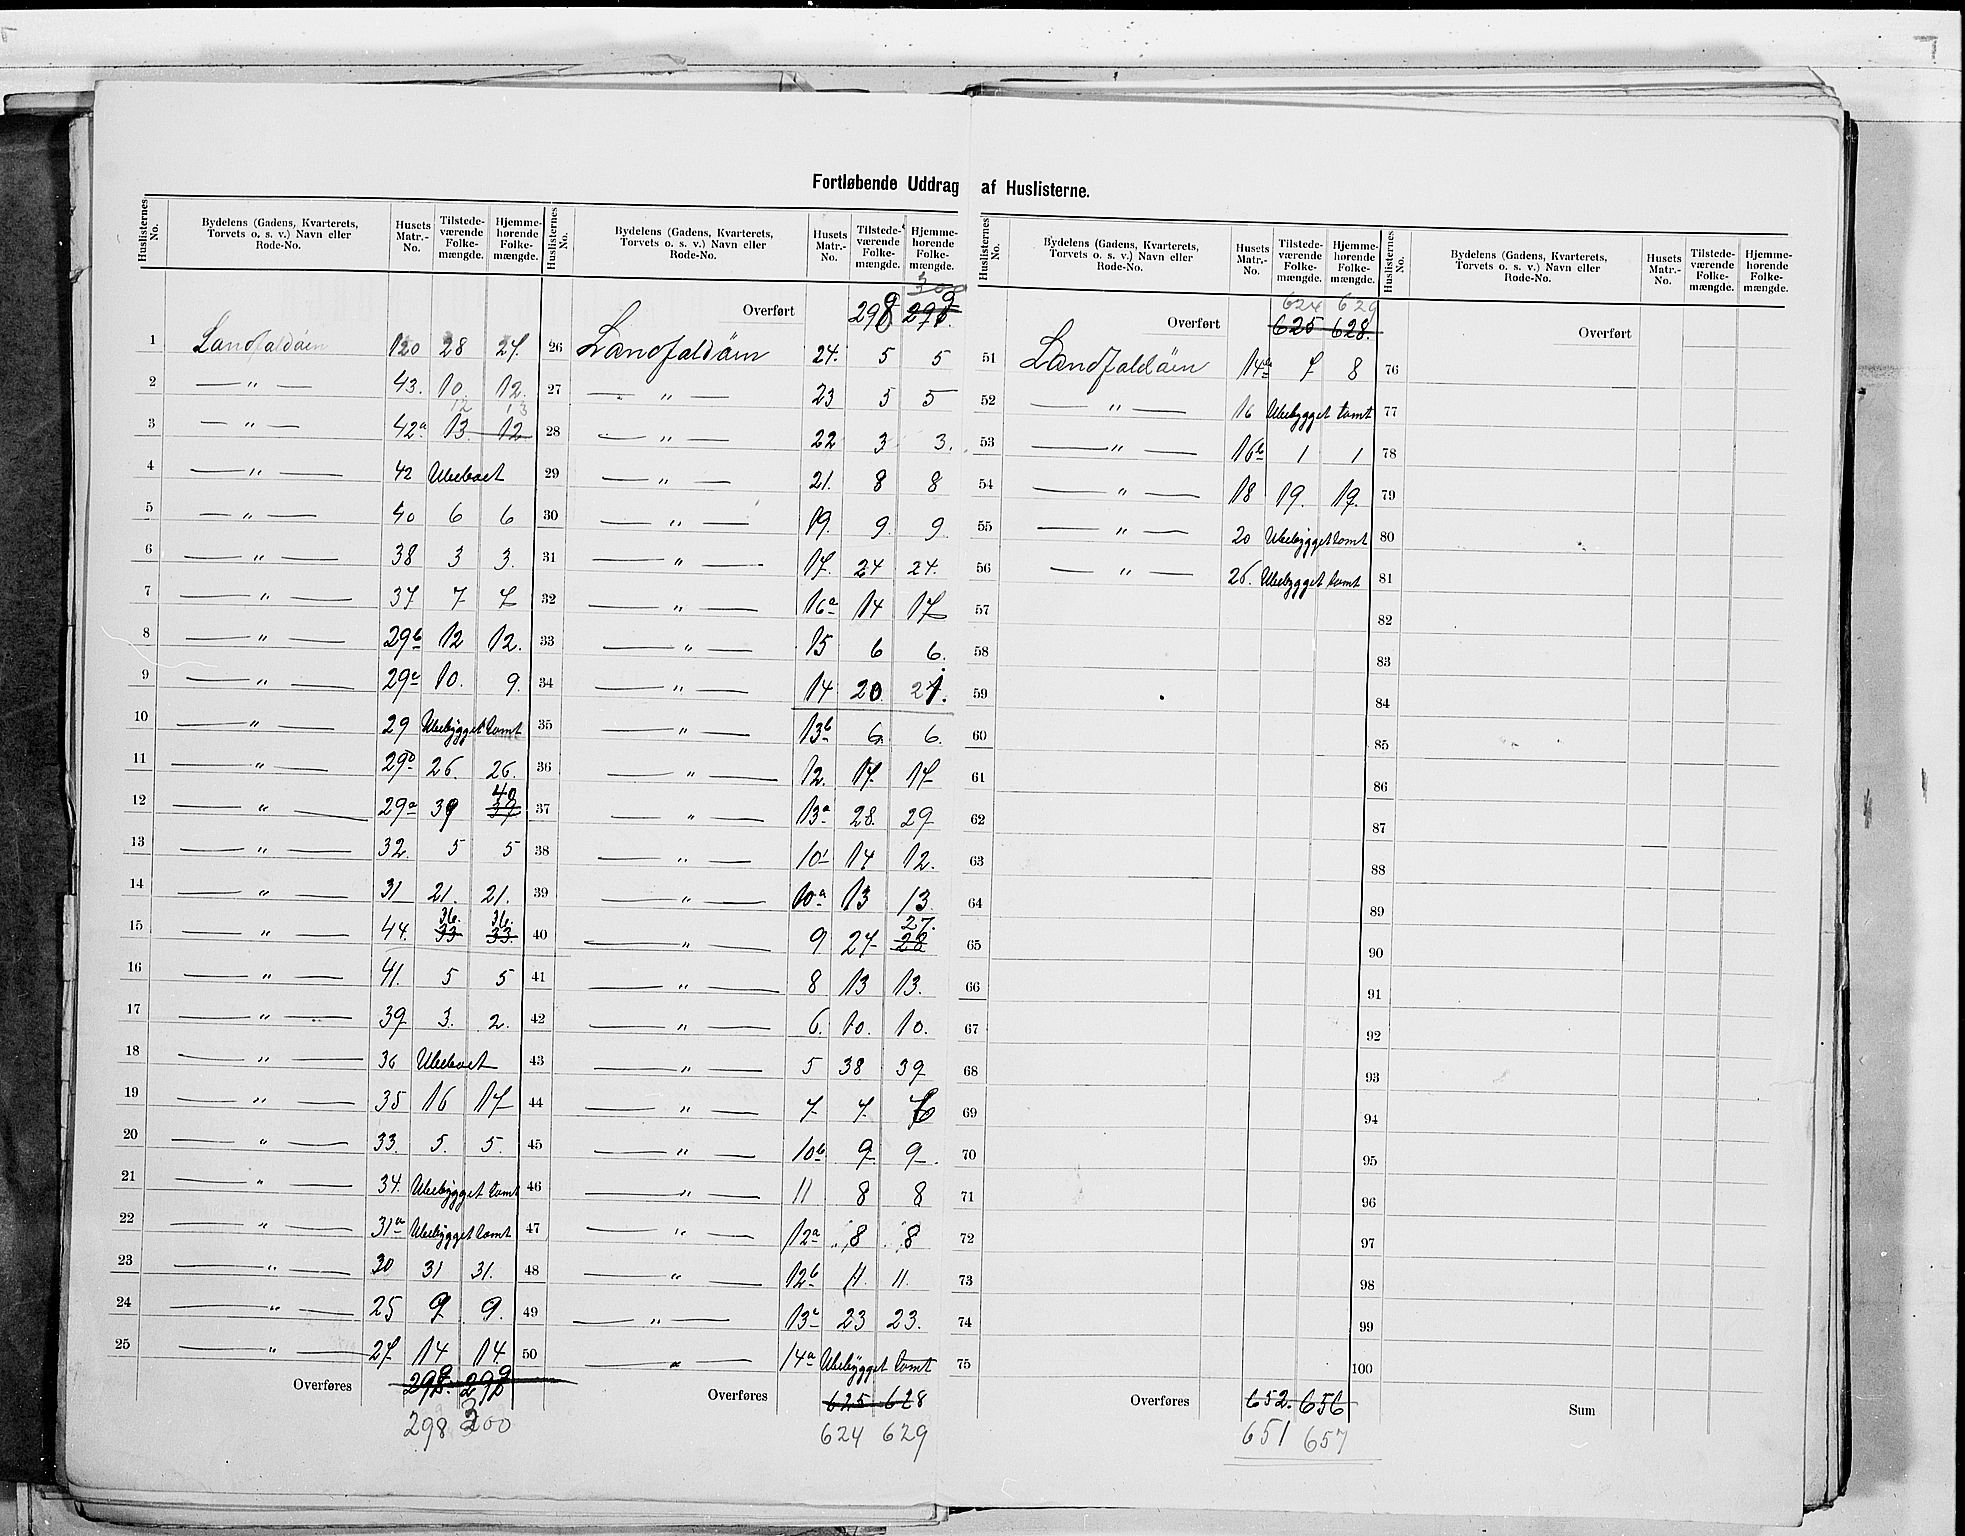 Fortløbende Uddrag af Huslisterne.
Huslisternes No. | Bydelens (Gadens, Kvarterets, Torvets o. s. v.) Navn eller Rode-No. | Husets Matr.-No. | Tilstedeværende Folkemængde. | Hjemmehørende Folkemængde.
1 Landfaldöen 120 28 27.
2 — " — 43. 10 12.
3 — " — 42a 13 12 12 13
4 — " — 42 Ubeboet
5 — " — 40 6 6
6 — " — 38 3 3.
7 — " — 37 7 7
8 — " — 29b 12 12.
9 — " — 29c 10. 9.
10 — " — 29 Ubebygget tomt
11 — " — 29D 26. 26.
12 — " — 29a 39 37 40
13 — " — 32. 5 5
14 — " — 31 21. 21.
15 — " — 44. 33 33. 36. 36.
16 — " — 41. 5 5
17 — " — 39 3. 2.
18 — " — 36 Ubeboet
19 — " — 35 16 17
20 — " — 33. 5. 5.
21 — " — 34. Ubebygget tomt
22 — " — 31a Ubebygget tomt
23 — " — 30 31 31.
24 — " — 25 9 9.
25 — " — 27 14 14.
Overføres 299 299
298 300
Huslisternes No. | Bydelens (Gadens, Kvarterets, Torvets o. s. v.) Navn eller Rode-No. | Husets Matr.-No. | Tilstedeværende Folkemængde. | Hjemmehørende Folkemængde.
300
Overført 298 299
26 Landfaldöen 24. 5 5
27 — " — 23 5 5
28 — " — 22 3 3.
29 — " — 21. 8 8
30 — " — 19. 9. 9.
31 — " — 17. 24 24.
32 — " — 16a 14 17
33 — " — 15 6 6.
34 — " — 14 20 21.
35 — " — 13b 6. 6.
36 — " — 12. 17. 17
37 — " — 13a 28. 29
38 — " — 10 14 12.
39 — " — 10a 13 13.
40 — " — 9 27 28 27.
41 — " — 8 13 13.
42 — " — 6. 10. 10.
43 — " — 5 38 39
44 — " — 7 7. 6
45 — " — 10b 9 9
46 — " — 11 8 8
47 — " — 12a 8 8
48 — " — 12b 11. 11.
49 — " — 13c 23 23.
50 — " — 14a Ubebygget tomt
Overføres 625 628
624 629
Huslisternes No. | Bydelens (Gadens, Kvarterets, Torvets o. s. v.) Navn eller Rode-No. | Husets Matr.-No. | Tilstedeværende Folkemængde. | Hjemmehørende Folkemængde.
624 629
Overført 625 628.
51 Landfaldöen 14b 7 8
52 — " — 16 Ubebygget tomt
53 — " — 16b 1 1
54 — " — 18 19. 19.
55 — " — 20 Ubebygget tomt
56 — " — 26. Ubebygget tomt
57
58
59
60
61
62
63
64
65
66
67
68
69
70
71
72
73
74
75
Overføres 652. 656
651 657
Huslisternes No. | Bydelens (Gadens, Kvarterets, Torvets o. s. v.) Navn eller Rode-No. | Husets Matr.-No. | Tilstedeværende Folkemængde. | Hjemmehørende Folkemængde.
Overført
76
77
78
79
80
81
82
83
84
85
86
87
88
89
90
91
92
93
94
95
96
97
98
99
100
Sum